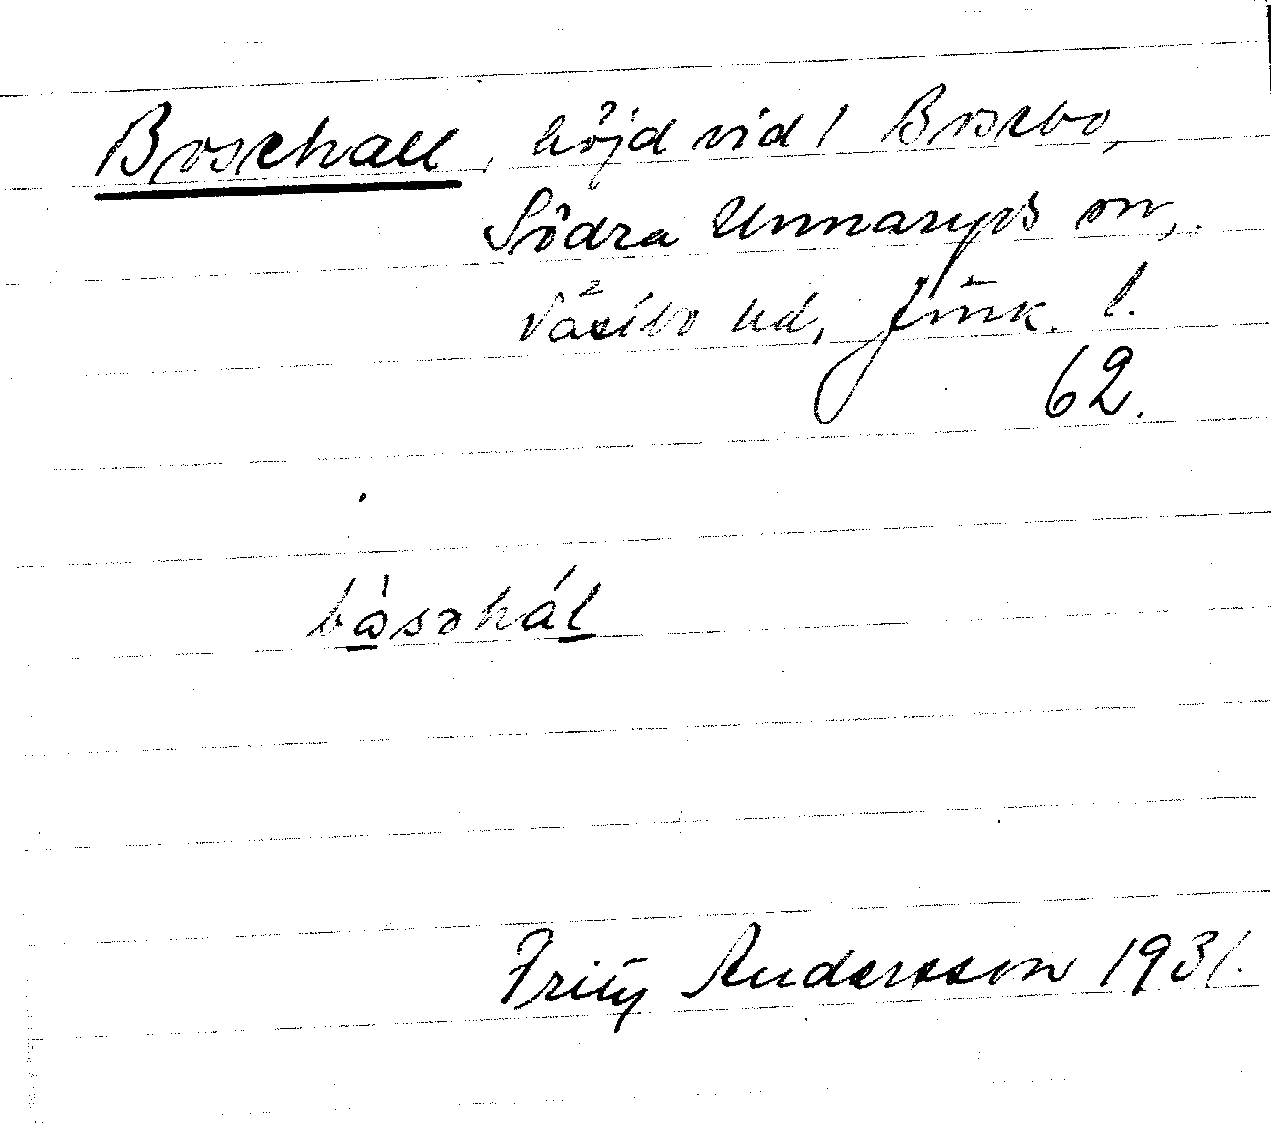 Bosehall, höjd vid 1 Bosebo,
Södra Unnaryds sn,
Västbo hd, Jönk. l.
62.
bòsəhál
Fritz Andersson 1931.